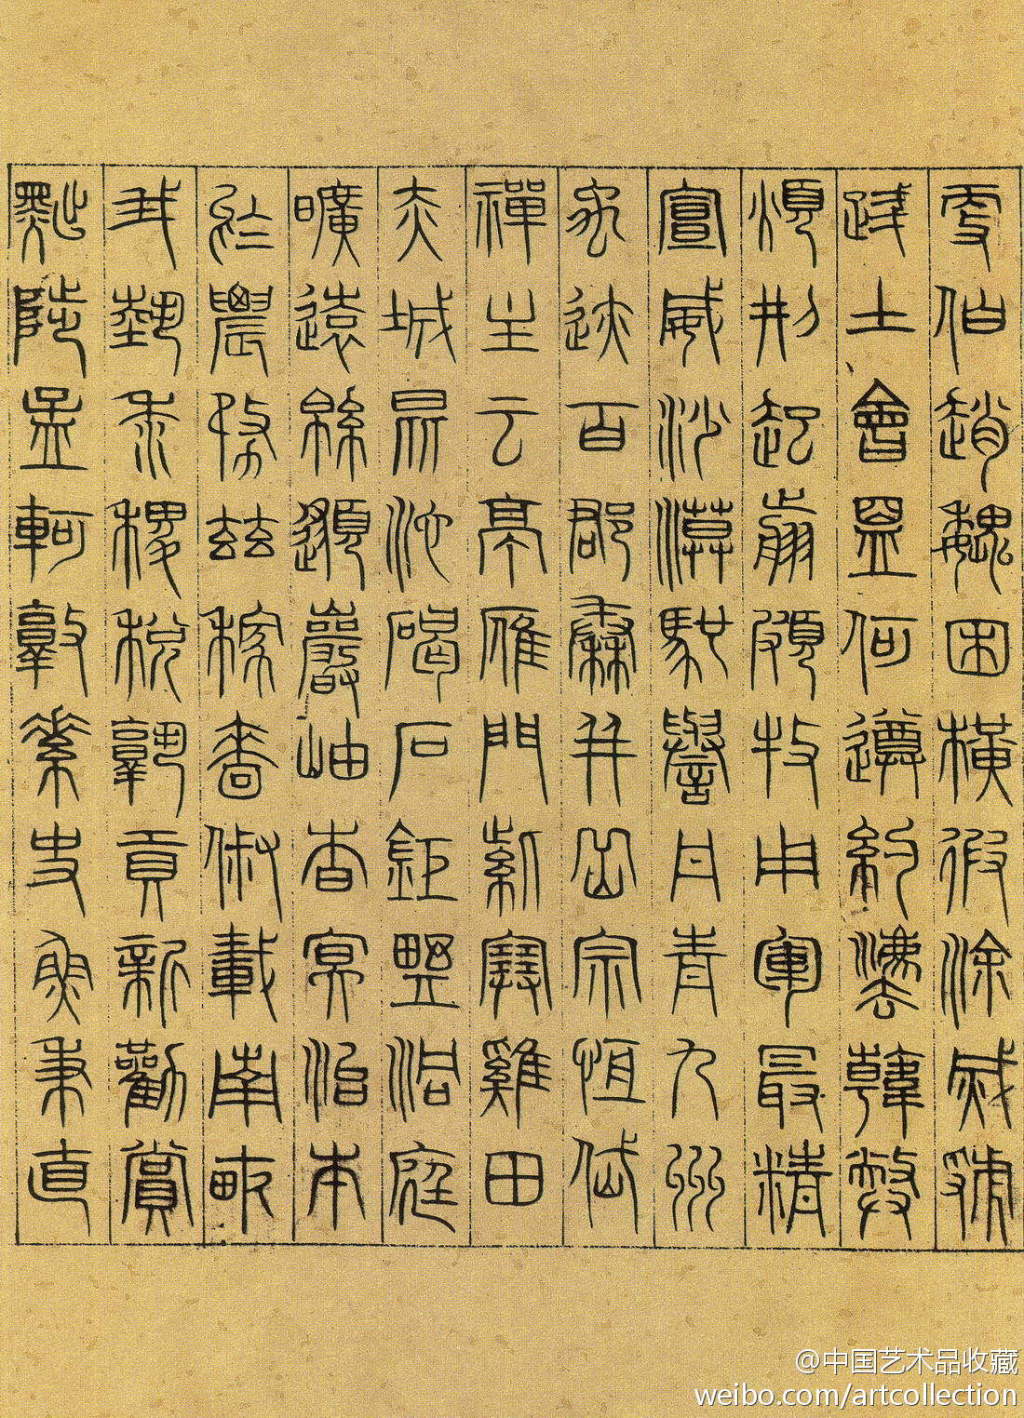 更伯趙魏困橫假涂滅虢
踐土會盟何遵約法韓弊
煩刑起翦頗牧用軍最精
宣威沙漠馳譽丹青九州
禹迹百郡秦并岳宗恒岱
禪主云亭雁門紫塞雞田
赤城昆池碣石鉅野洞庭
曠遠綿邈巖岫杳冥治本
於農務茲稼穡俶載南畝
我藝黍稷稅孰貢新勸賞
黜陟孟軻敦素史魚秉直
@中国艺术品收藏
weibo.com/artcollection